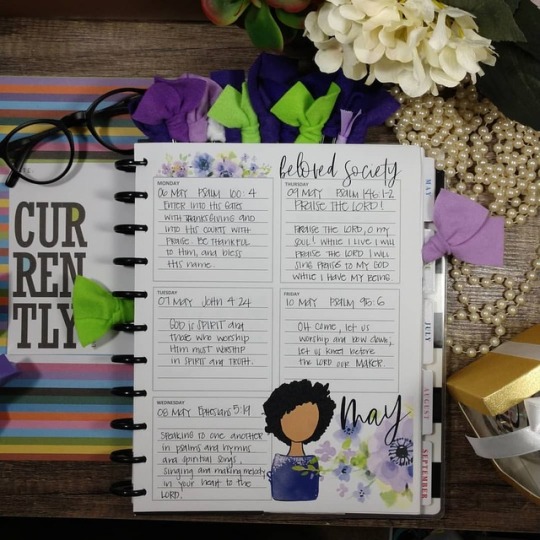 CUR
REN
TLY
beloved society
MONDAY
06 MAY PSALM 100:4
ENTER INTO HIS GATES
WITH THANKSGIVING AND
INTO HIS COURTS WITH
PRAISE. BE THANKFUL
TO HIM, AND BLESS
HIS NAME.
TUESDAY
07 MAY John 4:24
GOD is SPIRIT and
those who worship
Him must worship
in SPIRIT and TRUTH.
WEDNESDAY
08 MAY Ephesians 5:19
SPEAKING to one another
in psalms and hymns
and spiritual songs,
singing and making melody
in your heart to the
LORD.
THURSDAY
09 MAY PSALM 146:1-2
PRAISE THE LORD!
PRAISE THE LORD, O my
SOUL! WHILE I LIVE I WILL
PRAISE THE LORD I WILL
SING PRAISE TO MY GOD
WHILE I HAVE MY BEING.
FRIDAY
10 MAY PSALM 95:6
OH come, let us
worship and bow down,
let us kneel before
the LORD OUR MAKER.
may
MAY
JULY
AUGUST
SEPTEMBER